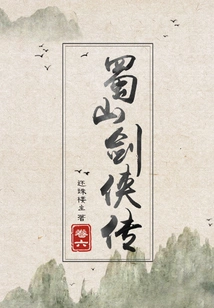 蜀山剑侠传
还珠楼主 著
卷六